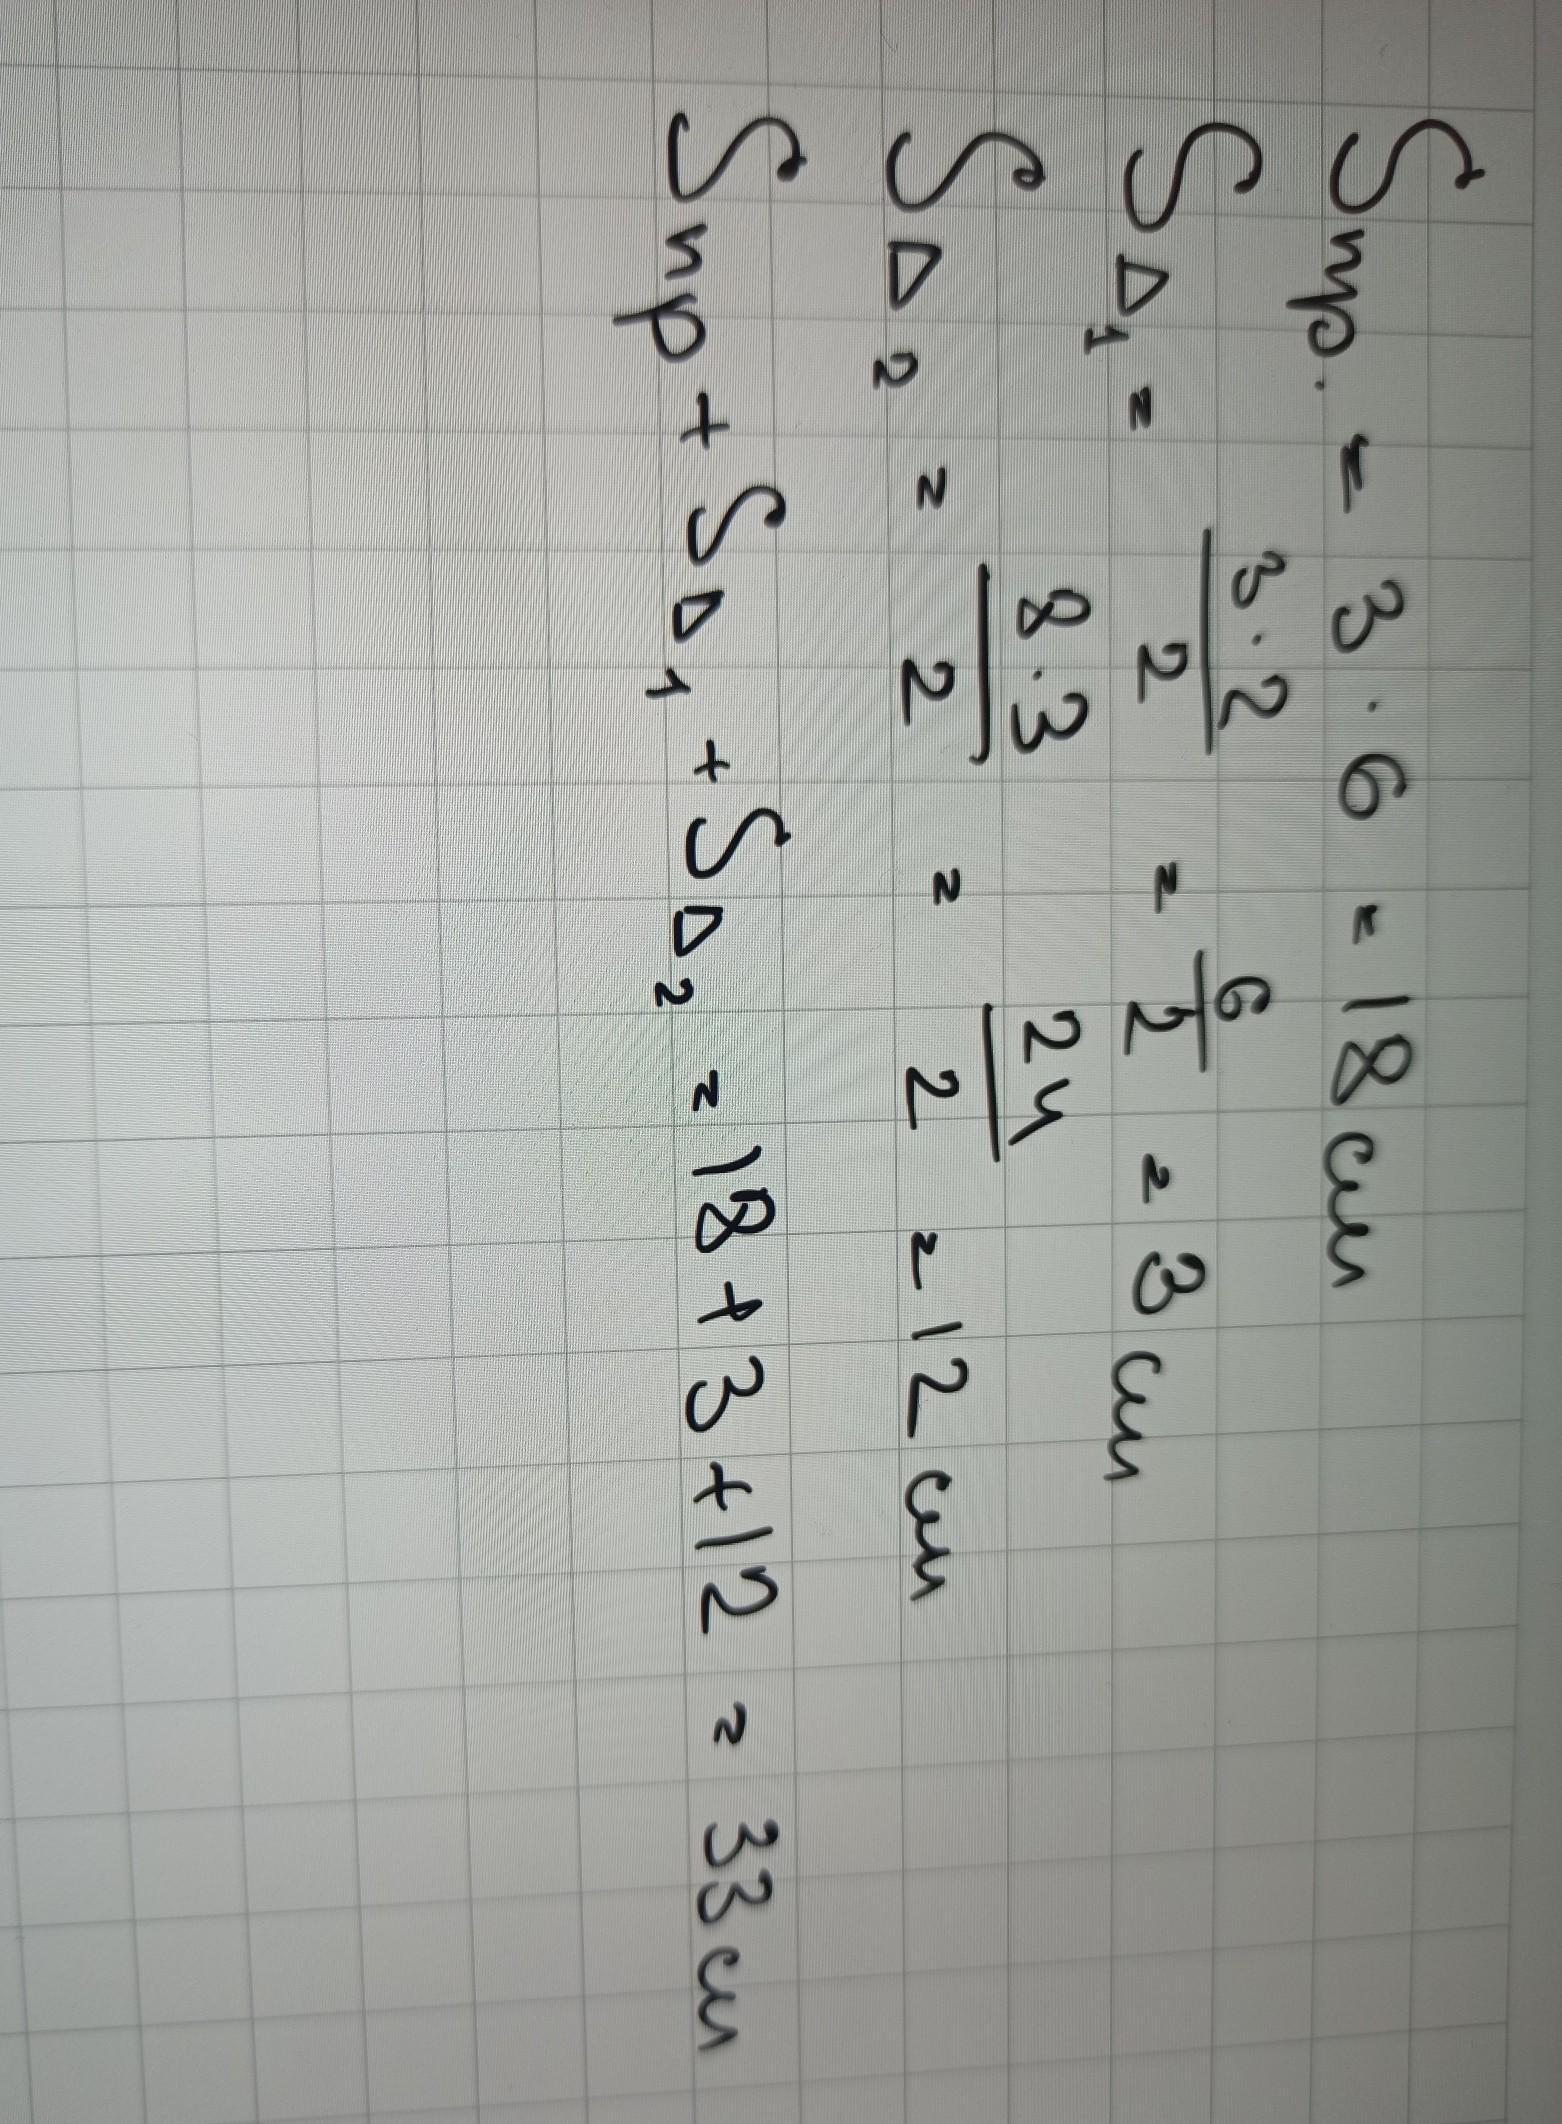 Sпр. = 3 · 6 = 18 см
S△1 = 3·2/2 = 6/2 = 3 см
S△2 = 8·3/2 = 24/2 = 12 см
Sпр + S△1 + S△2 = 18 + 3 + 12 = 33 см